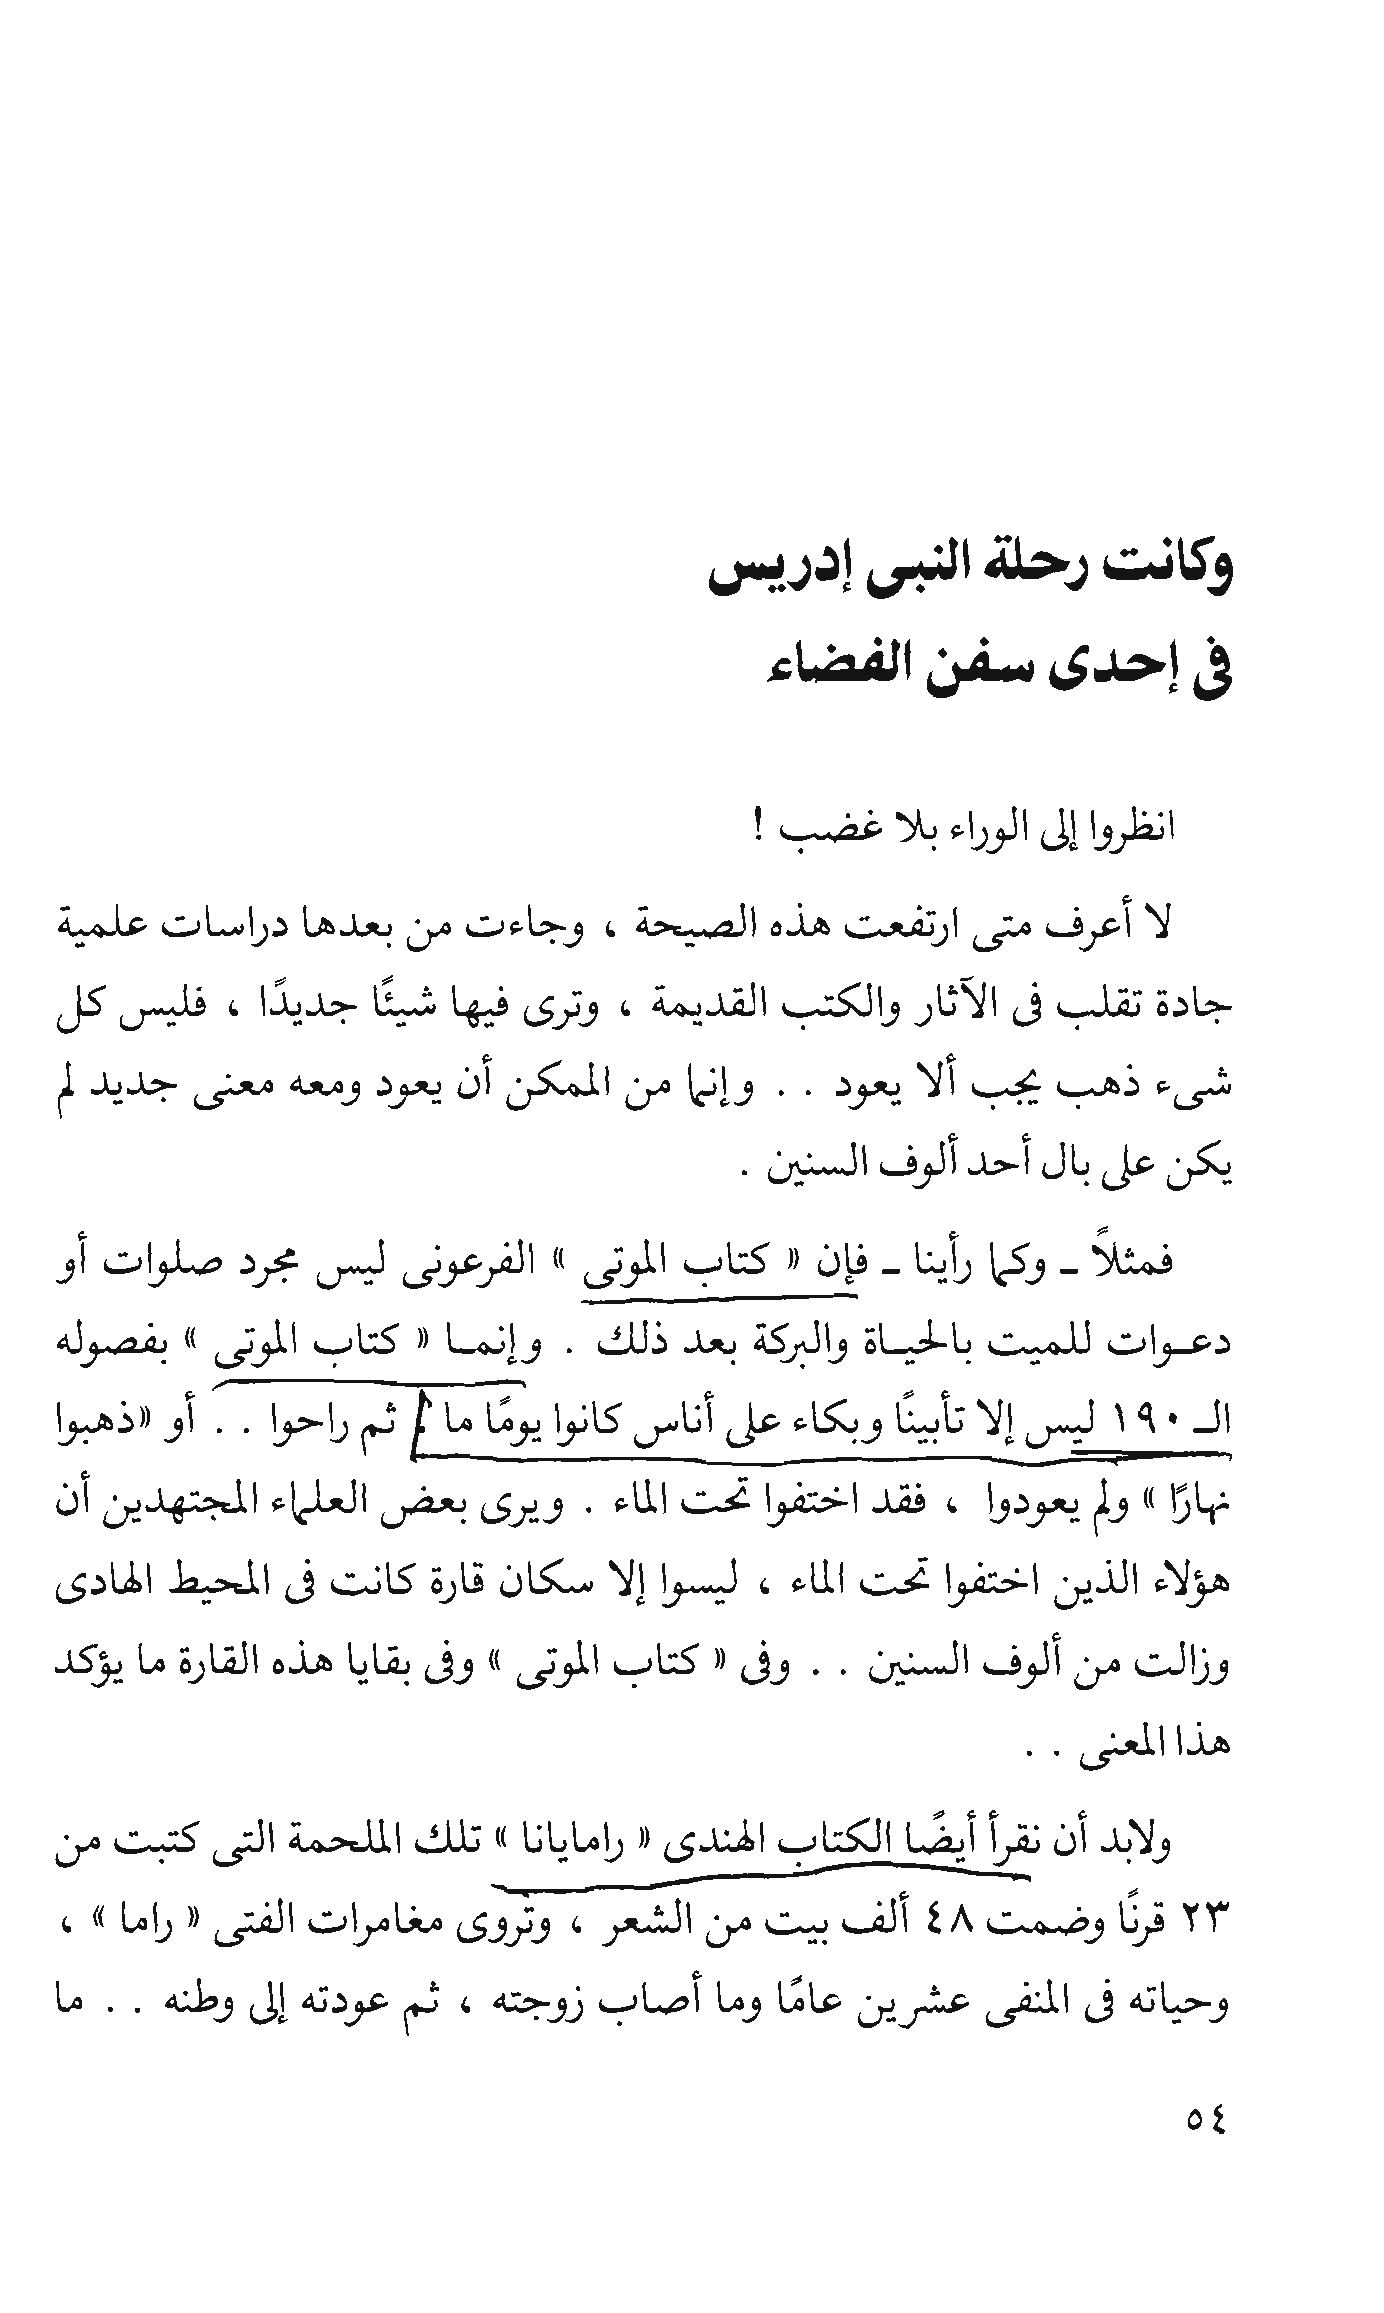 وكانت رحلة النبى إدريس
فى إحدى سفن الفضاء
انظروا إلى الوراء بلا غضب !
لا أعرف متى ارتفعت هذه الصيحة ، وجاءت من بعدها دراسات علمية
جادة تقلب فى الآثار والكتب القديمة ، وترى فيها شيئًا جديدًا ، فليس كل
شىء ذهب يجب ألا يعود . . وإنما من الممكن أن يعود ومعه معنى جديد لم
يكن على بال أحد ألوف السنين .
فمثلاً ـ وكما رأينا ـ فإن « كتاب الموتى » الفرعونى ليس مجرد صلوات أو
دعـوات للميت بالحيـاة والبركة بعد ذلك . وإنمـا « كتاب الموتى » بفصوله
الـ ١٩٠ ليس إلا تأبينًا وبكاء على أناس كانوا يومًا ما ! ثم راحوا . . أو «ذهبوا
نهارًا » ولم يعودوا ، فقد اختفوا تحت الماء . ويرى بعض العلماء المجتهدين أن
هؤلاء الذين اختفوا تحت الماء ، ليسوا إلا سكان قارة كانت فى المحيط الهادى
وزالت من ألوف السنين . . وفى « كتاب الموتى » وفى بقايا هذه القارة ما يؤكد
هذا المعنى . .
ولابد أن نقرأ أيضًا الكتاب الهندى « رامايانا » تلك الملحمة التى كتبت من
٢٣ قرنًا وضمت ٤٨ ألف بيت من الشعر ، وتروى مغامرات الفتى « راما » ،
وحياته فى المنفى عشرين عامًا وما أصاب زوجته ، ثم عودته إلى وطنه . . ما
٥٤